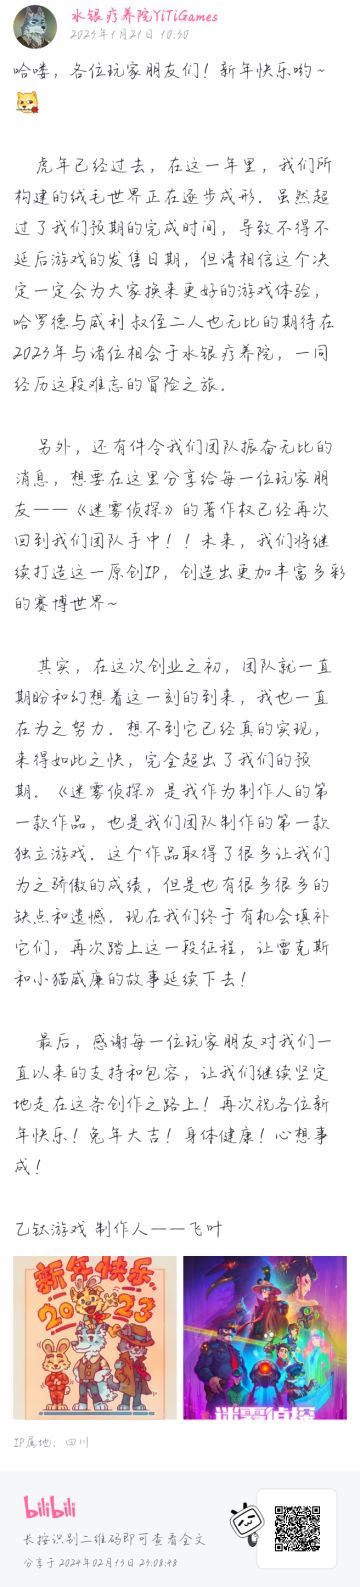 水银疗养院YiTiGames
2023年1月21日 10:30
哈喽，各位玩家朋友们！新年快乐哟~
虎年已经过去，在这一年里，我们所
构建的绒毛世界正在逐步成形．虽然超
过了我们预期的完成时间，导致不得不
延后游戏的发售日期，但请相信这个决
定一定会为大家换来更好的游戏体验，
哈罗德与威利 叔侄二人也无比的期待在
2023年与诸位相会于水银疗养院，一同
经历这段难忘的冒险之旅．
另外，还有件令我们团队振奋无比的
消息，想要在这里分享给每一位玩家朋
友——《迷雾侦探》的著作权已经再次
回到我们团队手中！！未来，我们将继
续打造这一原创IP，创造出更加丰富多彩
的赛博世界~
其实，在这次创业之初，团队就一直
期盼和幻想着这一刻的到来，我也一直
在为之努力．想不到它已经真的实现，
来得如此之快，完全超出了我们的预
期．《迷雾侦探》是我作为制作人的第
一款作品，也是我们团队制作的第一款
独立游戏．这个作品取得了很多让我们
为之骄傲的成绩，但是也有很多很多的
缺点和遗憾．现在我们终于有机会填补
它们，再次踏上这一段征程，让雷克斯
和小猫威廉的故事延续下去！
最后，感谢每一位玩家朋友对我们一
直以来的支持和包容，让我们继续坚定
地走在这条创作之路上！再次祝各位新
年快乐！兔年大吉！身体健康！心想事
成！
乙钛游戏 制作人——飞叶
新年快乐
2023
迷雾侦探
IP属地：四川
bilibili
长按识别二维码即可查看全文
分享于 2024年02月15日 23:08:48